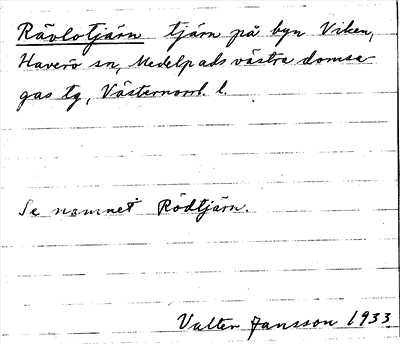 Rävlotjärn tjärn på byn Viken,
Haverö sn, Medelpads västra domsa-
gas tg, Västernorrl. l.
Se namnet Rödtjärn.
Valter Jansson 1933